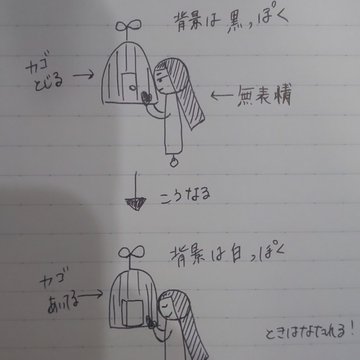 背景は黒っぽく
カゴ
とじる
無表情
こうなる
背景は白っぽく
カゴ
あいてる
ときはなたれる!